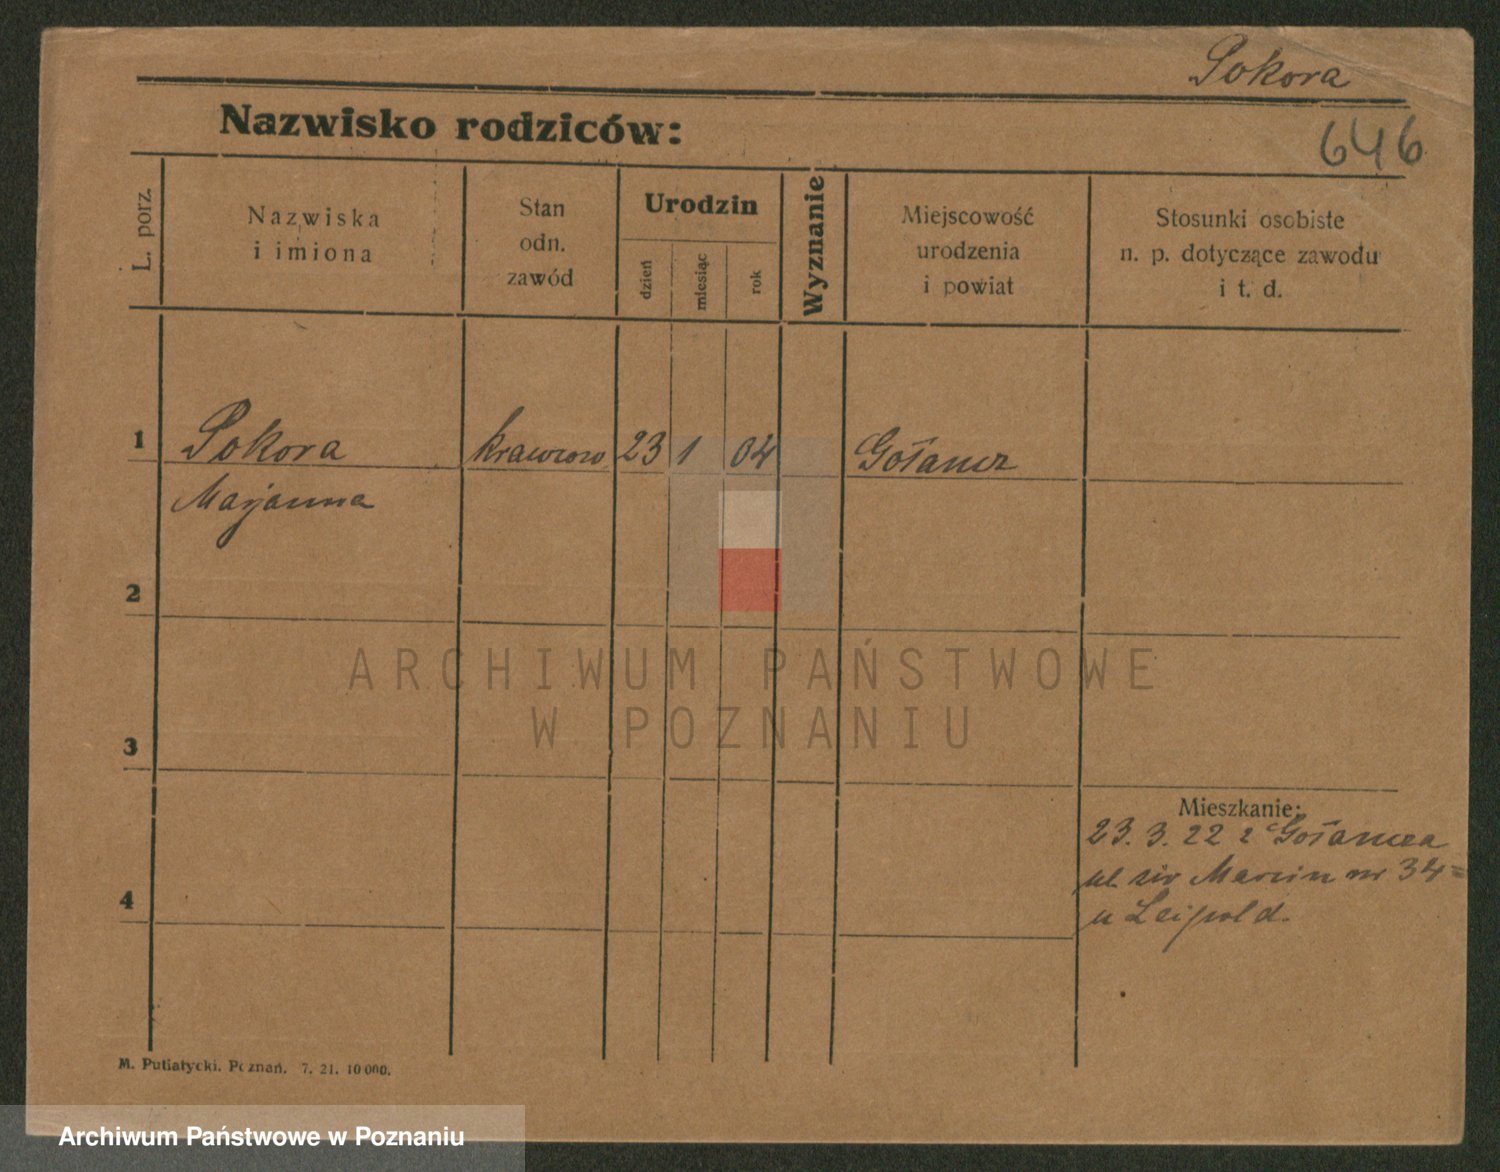 Pokora
646
Nazwisko rodziców:
L. porz.
Nazwiska
i imiona
Stan
odn.
zawód
Urodzin
dzień
miesiąc
rok
Wyznanie
Miejscowość
urodzenia
i powiat
Stosunki osobiste
n. p. dotyczące zawodu
i t. d.
1
Pokora
23
1
04
Gołańcz
Marjanna
2
ARCHIWUM PAŃSTWOWE
W POZNANIU
3
Mieszkanie:
23. 3. 22 z Gołańcza
ul. św Marcin nr 34
u Leipold.
4
M. Putiatycki. Poznań. 7. 21. 10 000.
Archiwum Państwowe w Poznaniu